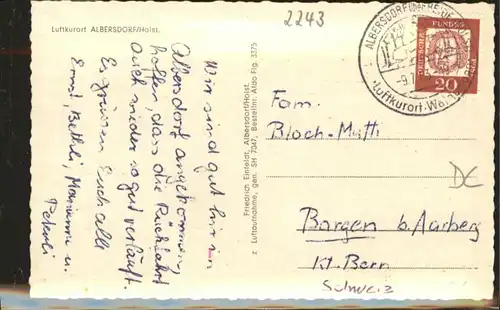 2243
Luftkurort ALBERSDORF/Holst.
Wir sind gut hier in
Albersdorf angekommen,
hoffen, dass die Rückfahrt
auch wieder so gut verläuft.
Es grüssen Euch alle
Ernst, Bethli, Marianne u.
Peterli
Friedrich Einfeldt, Albersdorf/Holst.
z Luftaufnahme, gen. SH 7047, Bestellnr. Aldo Flg 3375
ALBERSDORF
Luftkurort
DEUTSCHE BUNDESPOST
20
Fam.
Bloch-Mutti
DC
Bargen b. Aarberg
Kt. Bern
Schweiz